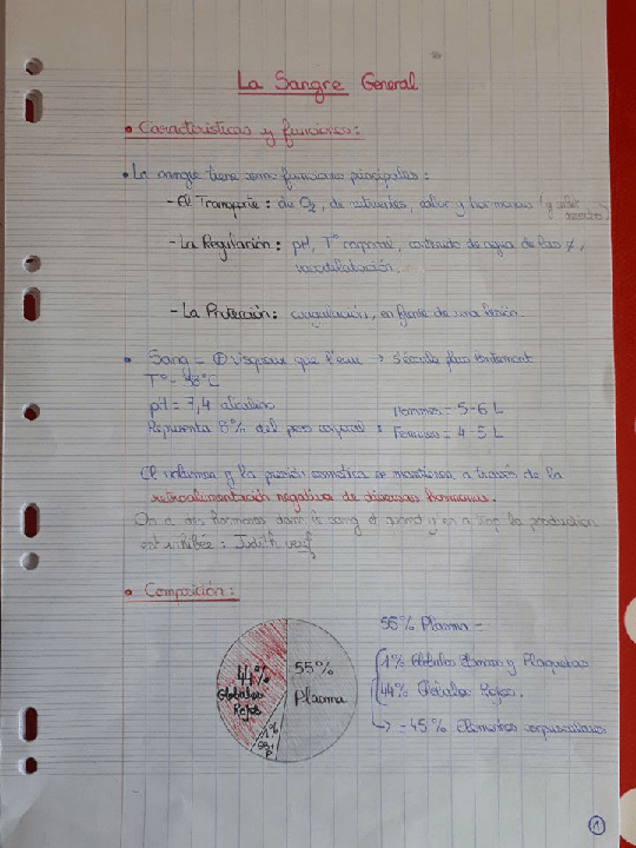 La Sangre General
• Características y funciones:
• La sangre tiene como funciones principales:
- El Transporte: de O2, de nutrientes, calor y hormonas (y
- La Regulación: pH, T° corporal, contenido de agua de las
vasodilatación.
- La Protección: coagulación, en frente de una lesión.
• Sang = ⊕ visqueux que l'eau → s'écoule plus lentement
T° = 38°C
pH = 7,4 alcalin
Representa 8% del peso corporal: Hommes = 5-6 L
Femmes = 4-5 L
El volumen y la presión osmótica se mantienen a través de la
retroalimentación negativa de diversas hormonas.
On a des hormones dans le sang et quand y'en a trop la production
est inhibée: Judith
• Composición:
44%
Globulos
Rojos
55%
Plasma
1%
GB+
P
55% Plasma =
1% Globulos Blancos y Plaquetas
44% Globulos Rojos.
↳ = 45% Elementos corpusculares
1